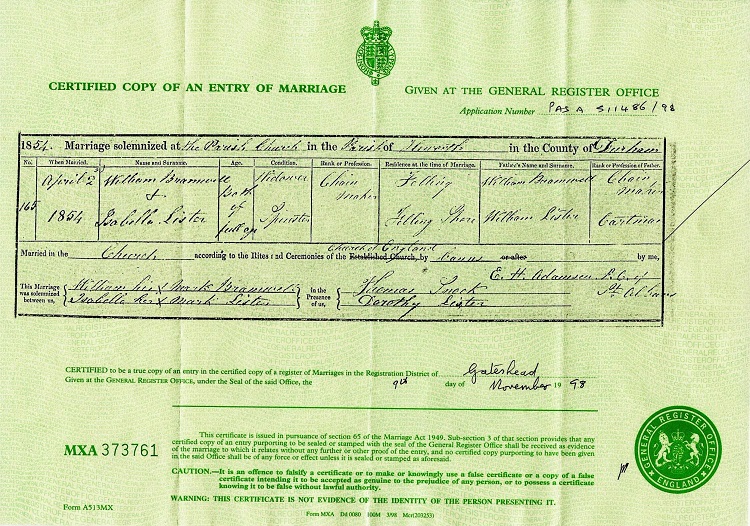 CERTIFIED COPY OF AN ENTRY OF MARRIAGE
GIVEN AT THE GENERAL REGISTER OFFICE
Application Number PAS A S11486/98
1854. Marriage solemnized at the Parish Church in the Parish of Heworth in the County of Durham
No. When Married. Name and Surname. Age. Condition. Rank or Profession. Residence at the time of Marriage. Father's Name and Surname. Rank or Profession of Father.
April 2 William Bramwell Both Widower Chain maker Felling William Bramwell Chain maker
165 & of
1854 Isabella Lister full age Spinster Felling Shore William Lister Cartman
Married in the Church according to the Rites and Ceremonies of the Church of England Established Church, by banns or after by me,
E. H. Adamson P.C. of St Albans
This Marriage was solemnized between us, William his x mark Bramwell In the Presence of us, Thomas
Isabella her x mark Lister Dorothy Lister
CERTIFIED to be a true copy of an entry in the certified copy of a register of Marriages in the Registration District of Gateshead
Given at the GENERAL REGISTER OFFICE, under the Seal of the said Office, the 9th day of November 19 98
MXA 373761
This certificate is issued in pursuance of section 65 of the Marriage Act 1949. Sub-section 3 of that section provides that any
certified copy of an entry purporting to be sealed or stamped with the seal of the General Register Office shall be received as evidence
of the marriage to which it relates without any further or other proof of the entry, and no certified copy purporting to have been given
in the said Office shall be of any force or effect unless it is sealed or stamped as aforesaid.
CAUTION.—It is an offence to falsify a certificate or to make or knowingly use a false certificate or a copy of a false
certificate intending it to be accepted as genuine to the prejudice of any person, or to possess a certificate
knowing it to be false without lawful authority.
WARNING: THIS CERTIFICATE IS NOT EVIDENCE OF THE IDENTITY OF THE PERSON PRESENTING IT.
GENERAL REGISTER OFFICE
ENGLAND
Form A513MX
Form MXA Dd 0080 100M 3/98 Mcr(203253)